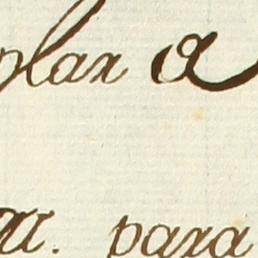 plar a
M. para